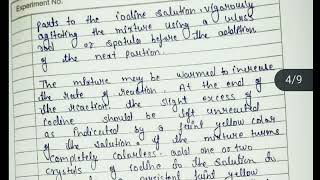 Experiment No.
parts to the iodine solution, vigorously
agitating the mixture using a glass
rod or spatula before the addition
of the next portion.
The mixture may be warmed to increase
the rate of reaction. At the end of
the reaction the slight excess of
iodine should be left unreacted
as indicated by a faint yellow color
of the solution, if the mixture turns
completely colorless add one or two
crystals of iodine to the solution to
persistent faint yellow
4/9